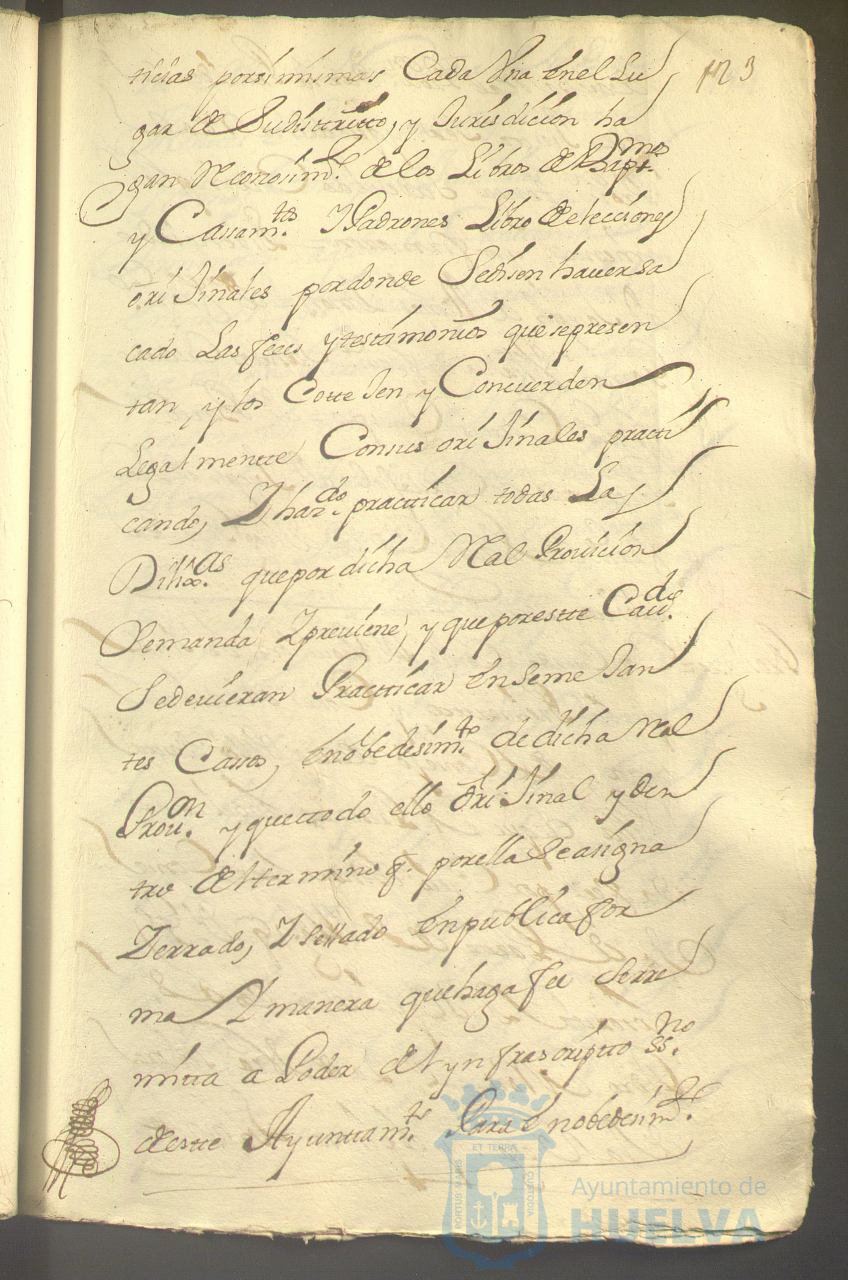 123
ticias porsimismas Cada Vna En el Lu
gar de Sudisttritto, y Jurisdicion ha
gan Reconosim.to de los Libros de Bapt.mos
y Casam.tos Y Padrones Libro de elecciones
oriJinales por donde Sedisen haversa
cado Las fees y testimonios que se presen
tan, y los CotteJen y Concuerden
Legalmentte Consus oriJinales practi
cando, Y haz.do practticar todas Las
Dilix.as que por dicha Real Provicion
Semanda Y previene, y que por estte Cav.do
Sedevieran Practticar En SemeJan
tes Casos, En obedesim.to de dicha Real
Prov.on y quettodo ello OriJinal y den
tro del termino q. por ella Se asigna
Zerrado, Y Sellado En publica for
ma Y manera que haga fee Serre
mitta a Poder del ynfrascriptto ss.no
de estte Ayunttam.to Para En obedesim.to
ET TERRAE
PORTUS MARIS
CUSTODIA
Ayuntamiento de
HUELVA